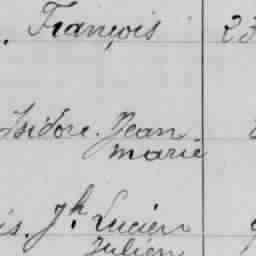 François 23
Isidore. Jean
marie
is. Jh. Lucien
Julien